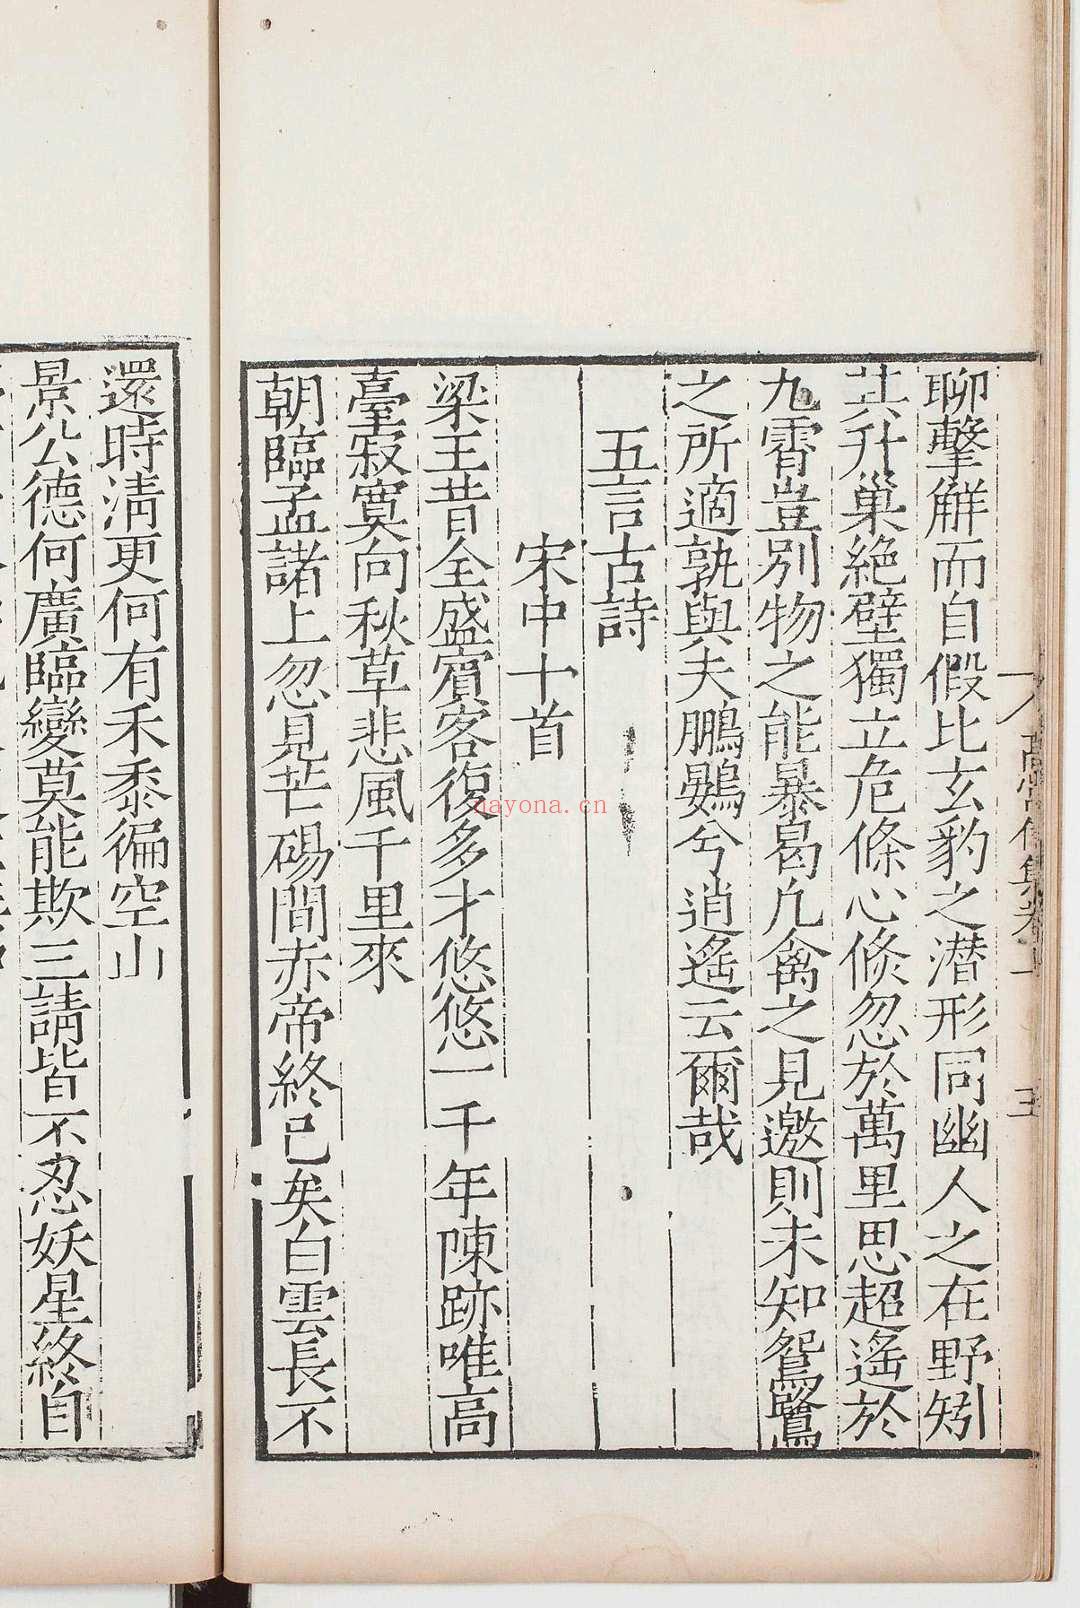 聊擊觧而自假比玄豹之潜形同幽人之在野矧
其升巢絶壁獨立危條心倐忽於萬里思超遥於
九霄豈别物之能暴曷凡禽之見邀則未知鴛鷺
之所適孰與夫鵬鷃兮逍遥云爾哉
五言古詩
宋中十首
梁王昔全盛賓客復多才悠悠一千年陳跡唯高
臺寂寞向秋草悲風千里來
朝臨孟諸上忽見芒碭間赤帝終已矣白雲長不
還時清更何有禾黍徧空山
景公德何廣臨變莫能欺三請皆不忍妖星終自
nayona.cn